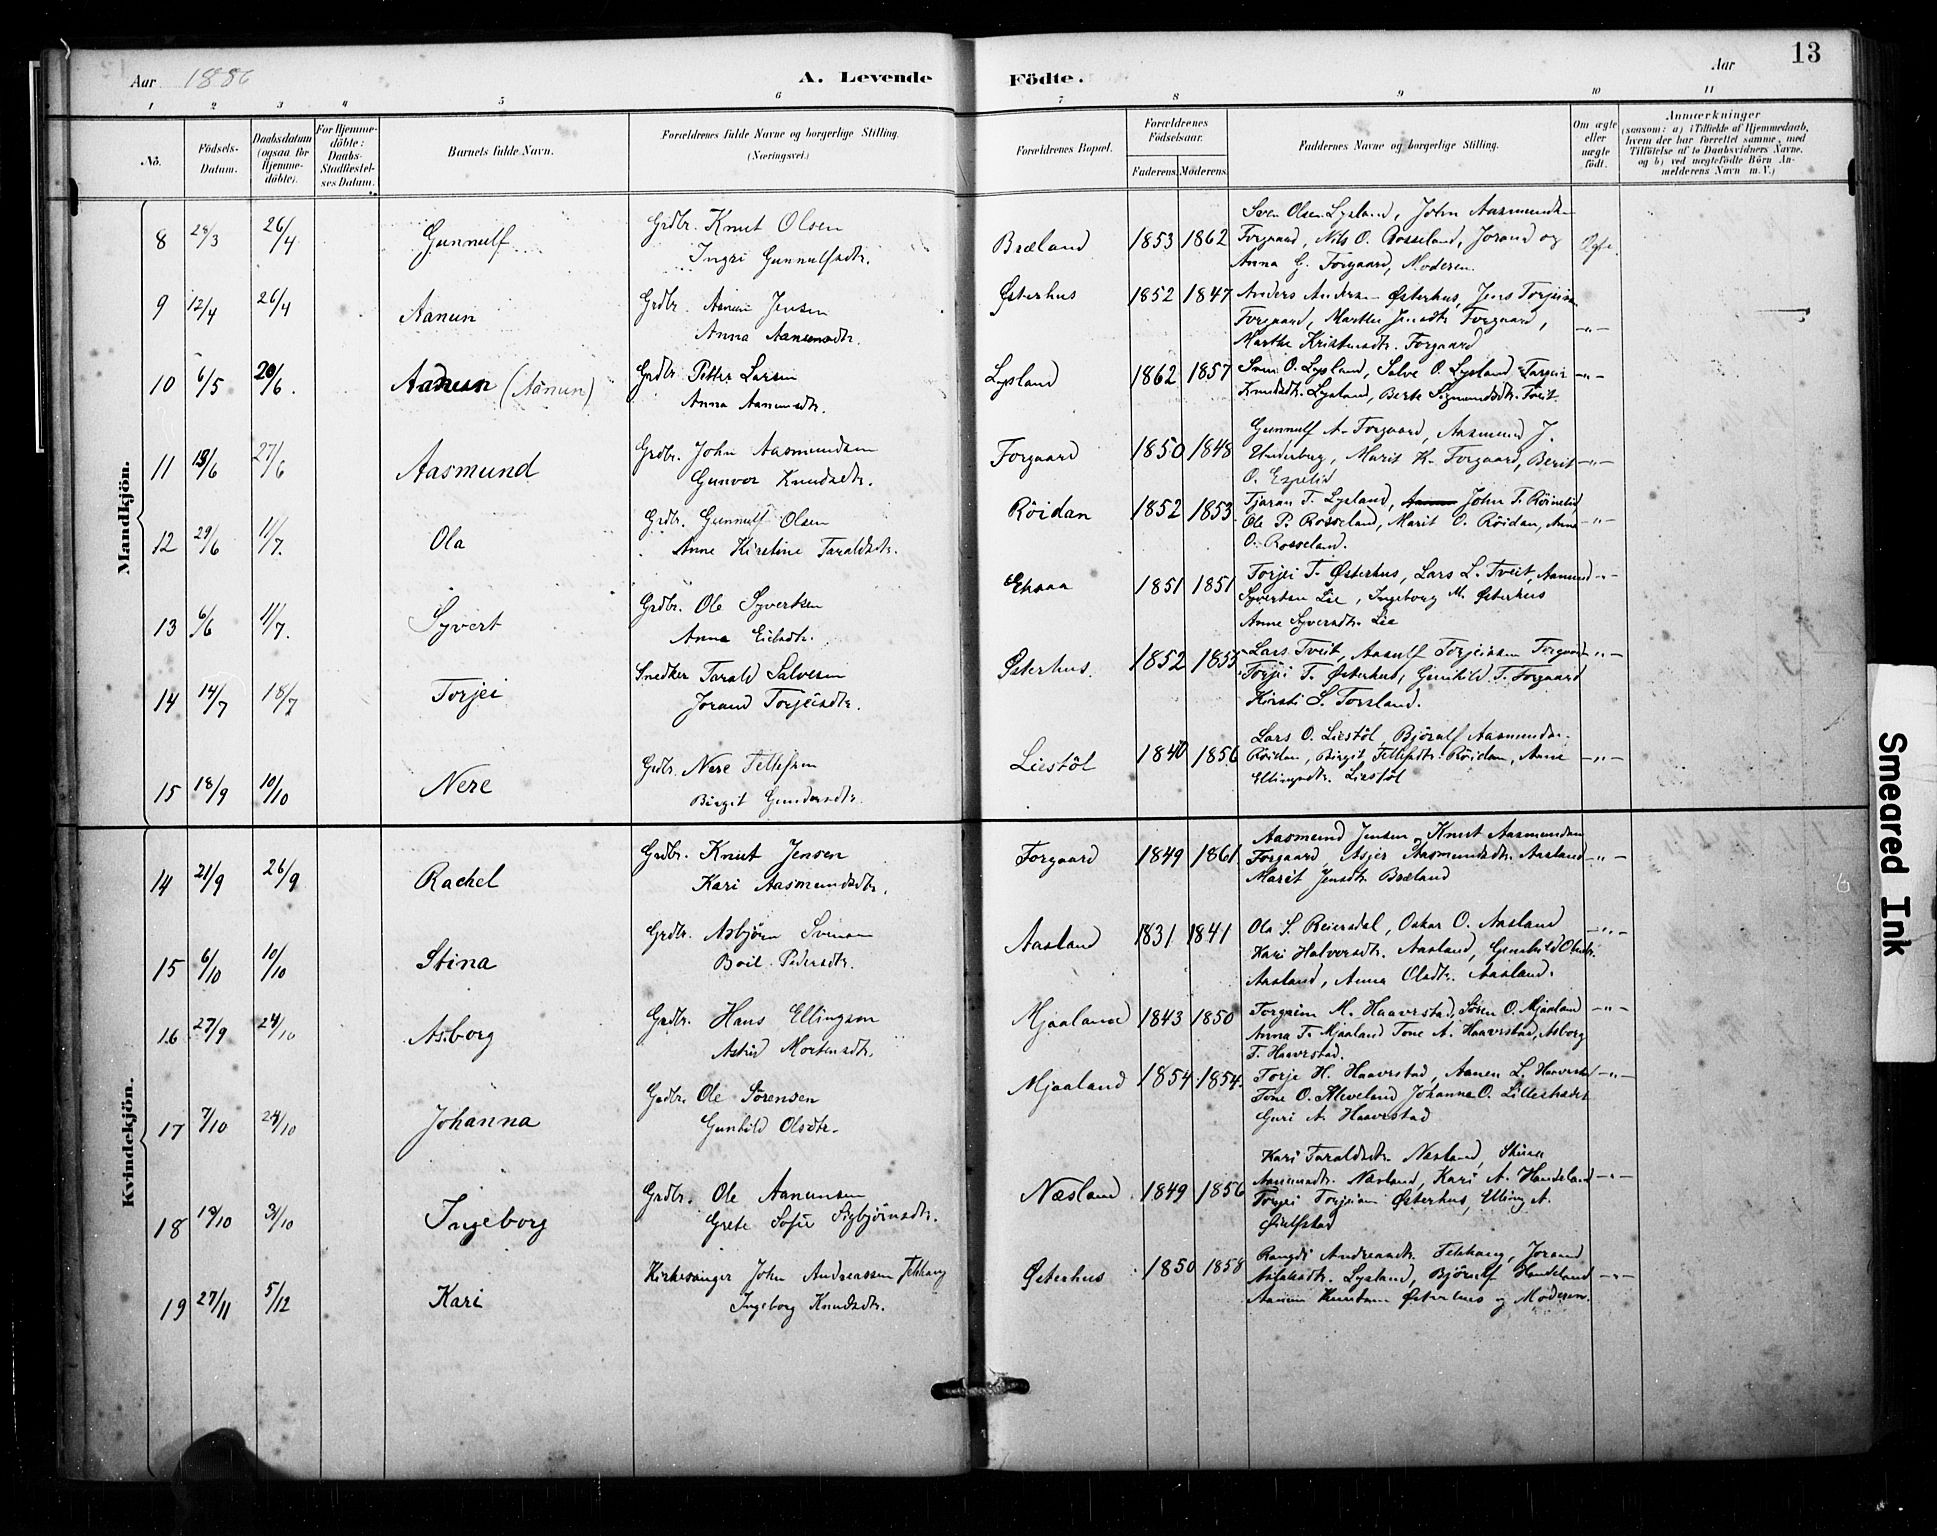 Aar 1886
A. Levende
Födte.
Aar
13
1 2 3 4 5 6 7 8 9 10 11
No.
Födsels-Datum.
Daabsdatum (ogsaa for Hjemme-döbte).
For Hjemme-döbte: Daabs-Stadfæstel-ses Datum.
Barnets fulde Navn.
Forældrenes fulde Navne og borgerlige Stilling. (Næringsvei.)
Forældrenes Bopæl.
Forældrenes Födselsaar.
Faderens. Moderens.
Faddernes Navne og borgerlige Stilling.
Om ægte eller uægte födt.
Anmærkninger
(saasom: a) i Tilfælde af Hjemmedaab,
hvem der har forrettet samme, med
Tilföielse af to Daabsvidners Navne,
og b) ved uægtefödte Börn An-
melderens Navn m. V.)
Mandkjön.
8 28/3 26/4 Gunnulf Grdbr. Knut Olsen
Ingri Gunnulfsdtr.
Bræland 1853 1862
Sven Olsen Lysland, John Aasmundsen
Forgaard, Nils O. Rosseland, Jorand og
Anna G. Forgaard, Moderen.
Ægte.
9 12/4 26/4 Aanun Grdbr. Aanun Jensen
Anna Aanensdtr.
Østerhus 1852 1847
Anders Anders. Østerhus, Jens Torjeisen
Forgaard, Marthe Jensdtr Forgaard,
Marthe Kristensdtr. Forgaard
-"-
10 6/5 20/6. Aanun (Aanun) Grdbr. Petter Larsen
Anna Aanunsdtr.
Lysland 1862 1857
Sven O. Lysland, Salve O. Lysland, Torgier
Knudsdtr. Lysland, Berte Sigmundsdtr. Tveit.
-"-
11 13/6 27/6 Aasmund Grdbr. John Aasmundsen
Gunvor Knudsdtr.
Forgaard 1850 1848
Gunnulf A. Forgaard, Aasmund J.
Underbug, Marit K. Forgaard, Berit
O. Espelid
-"-
12 29/6 11/7. Ola Grdbr. Gunnulf Olsen
Anne Kirstine Taraldsdtr.
Röidan 1852 1853
Tjaran T. Lysland, John T. Röinelid,
Ole P. Rosseland, Marit O. Röidan, Anne
O. Rosseland.
-"-
13 6/6 11/7. Syvert Grdbr. Ole Syvertsen
Anna Eilsdtr.
Eksaa 1851 1851
Torjei T. Østerhus, Lars L. Tveit, Aanund
Syvertsen Lie, Ingeborg M. Østerhus
Anne Syversdtr. Lie
-"-
14 14/7 18/7 Torjei Snedker Tarald Salvesen
Jorand Torjeisdtr.
Østerhus. 1852 1855
Lars Tveit, Aasulf Torjeissen Forgaard
Torjei T. Østerhus, Gunhild T. Forgaard
Kirsti S. Torsland.
-"-
15 18/9 10/10 Nere Grdbr. Nere Fellefsen
Birgit Gundersdtr.
Liestöl 1840 1856
Lars O. Liestöl, Björulf Aasmunds.
Röidan, Birgit Tellefsdtr. Röidan, Anne
Ellingsdtr. Liestöl
-"-
Kvindekjön.
14 21/9 26/9 Rachel Grdbr. Knut Jensen
Kari Aasmundsdtr.
Forgaard 1849 1861
Aasmund Jensen, Knut Aasmundsen
Forgaard, Asjer Aasmundsdtr. Aasland
Marit Jensdtr. Bræland
-"-
15 6/10 10/10 Stina Grdbr. Asbjörn Svensen
Boil Pedersdtr.
Aasland 1831 1841
Ola S. Reiersdal, Oskar O. Aasland
Kari Halversdtr. Aasland, Gunhild Olsdtr.
Aasland, Anna Olsdtr. Aasland.
-"-
16 27/9 24/10 Asborg Grdbr. Hans Ellingsen
Astrid Mortensdtr.
Mjaaland 1843 1850
Torgrim M. Haaverstad, Sören O. Mjaaland
Anna T. Mjaaland Tone A. Haaverstad, Asborg
T. Haaverstad.
-"-
17 7/10 24/10 Johanna Grdbr. Ole Sörensen
Gunhild Olsdtr.
Mjaaland 1854 1854.
Torje H. Haaverstad, Aanen L. Haaverstad
Tone O. Kleveland Johanna O. Lillestrader
Guri A. Haaverstad
-"-
18 13/10 31/10 Ingeborg Grdbr. Ole Aanunsen
Grete Sofie Sigbjörnsdtr.
Næsland 1849 1856
Kari Taraldsdtr. Næsland,
Aanensdtr. Næsland, Kari A. Handeland
Torjei Torjeisen Østerhus, Elling A.
-"-
19 27/11 5/12 Kari Kirkesanger John Andreassen Felthaug
Ingeborg Knudsdtr.
Østerhus 1850 1858
Rangdi Andreasdtr. Felthaug, Jorand
Lysland, Björulf Handeland
Aanun Knutsen Østerhus og Moderen.
-"-
Smeared Ink